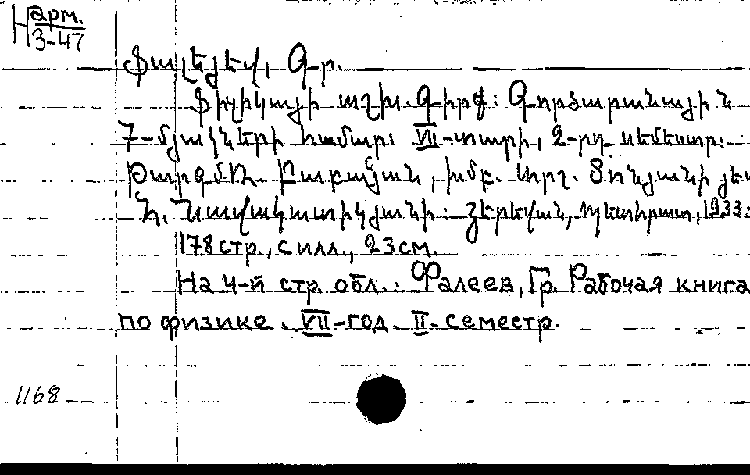 Н арм.
3-47
Ֆալեյեվ, Գ-ր.
Ֆիզիկայի աշխ. Գիրք: Գործարանային
7-մյակների համար: VII-տարի, 2-րդ սեմեստր:
Թարգմ. Ռ. Բաբայան, խմբ. Արշ. Տոնյանի յեվ
Հ. Նավակատիկյանի: Յերեվան, Պետհրատ, 1933:
178 стр., с илл., 23 см.
На 4-й стр. обл.: Фалеев, Гр. Рабочая книга
по физике. VII-год. II-семестр.
1168